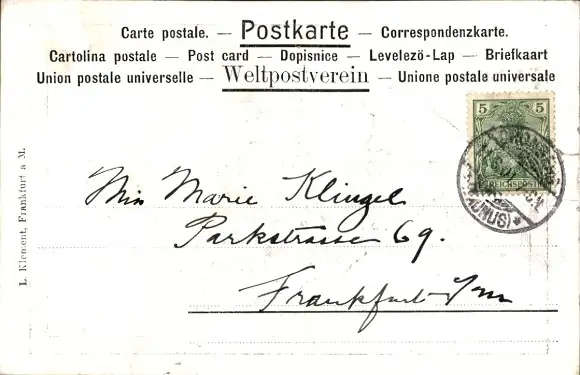 Carte postale. — Postkarte — Correspondenzkarte.
Cartolina postale — Post card — Dopisnice — Levelezö-Lap — Briefkaart
Union postale universelle — Weltpostverein — Unione postale universale
5 5
REICHSPOST
(TAUNUS)
Miss Marie Klingel
Parkstrasse 69.
Frankfurt a/m
L. Klement, Frankfurt a M.